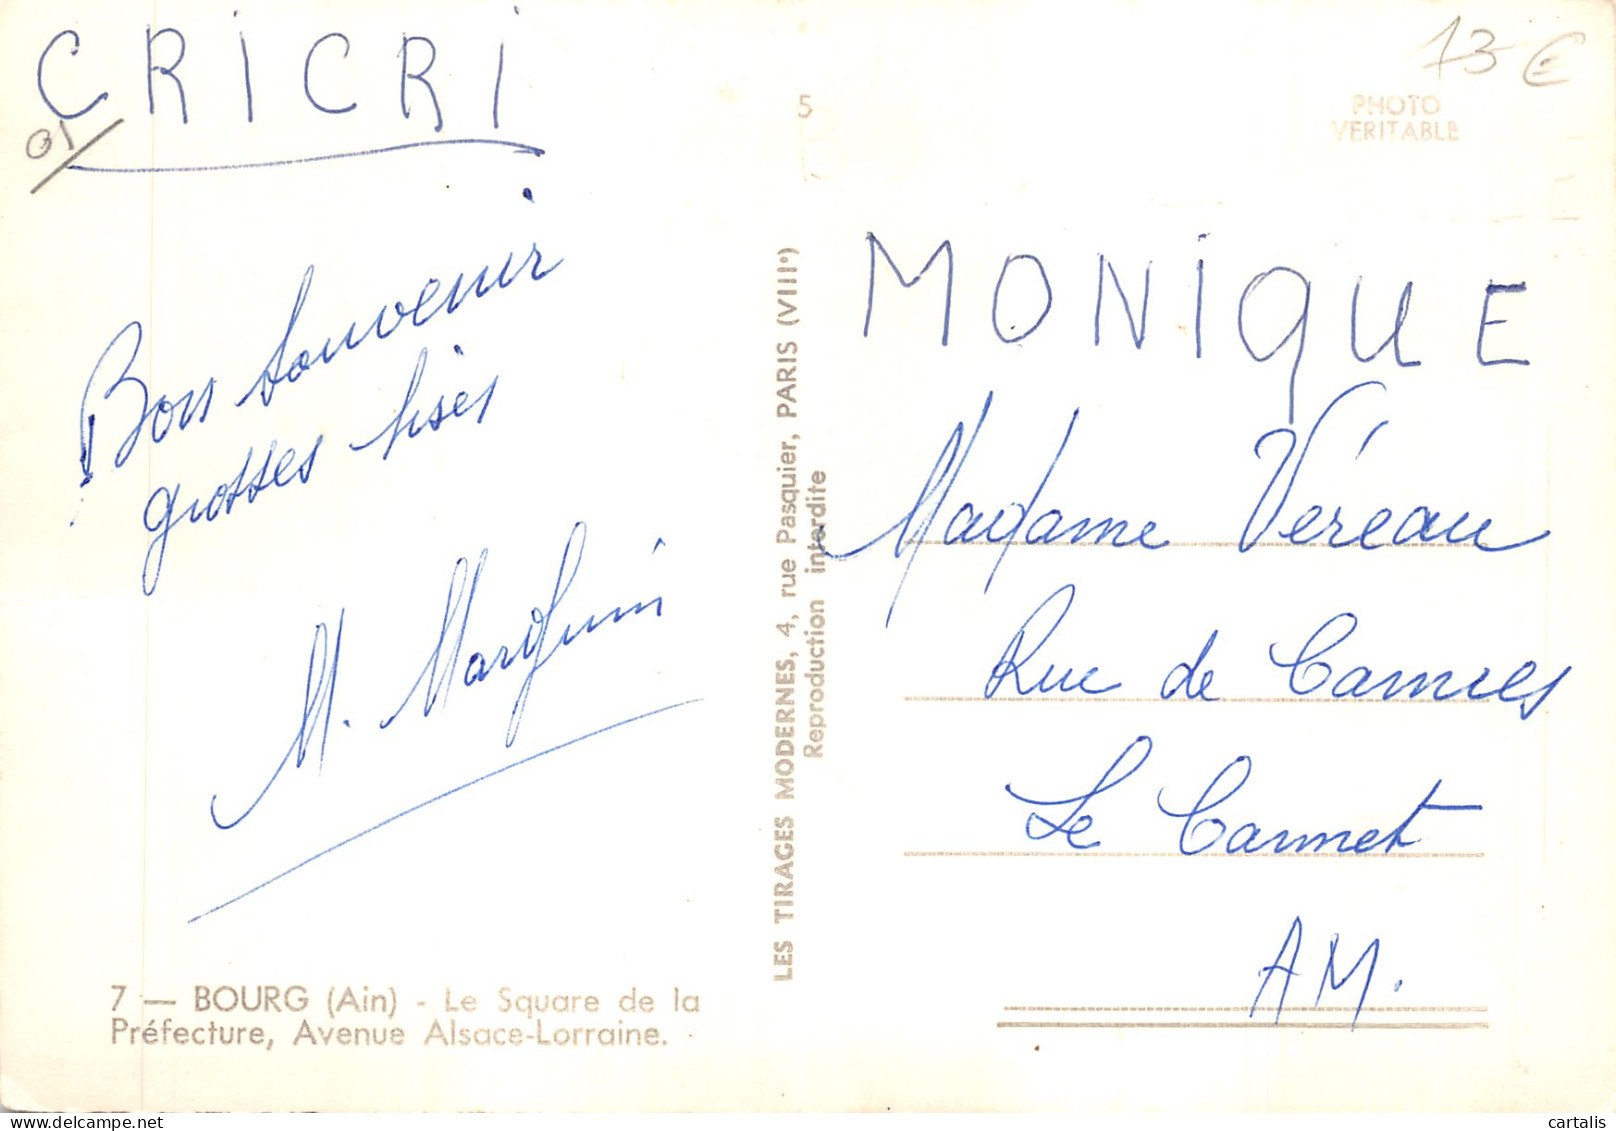 CRICRI
01
Bon souvenir
grosses bises
M. Marguin
7 — BOURG (Ain) - Le Square de la
Préfecture, Avenue Alsace-Lorraine.
5
LES TIRAGES MODERNES, 4, rue Pasquier, PARIS (VIIIe)
Reproduction interdite
13 €
PHOTO
VERITABLE
MONIQUE
Madame Véreau
Rue de Cannes
Le Cannet
AM.
cartalis